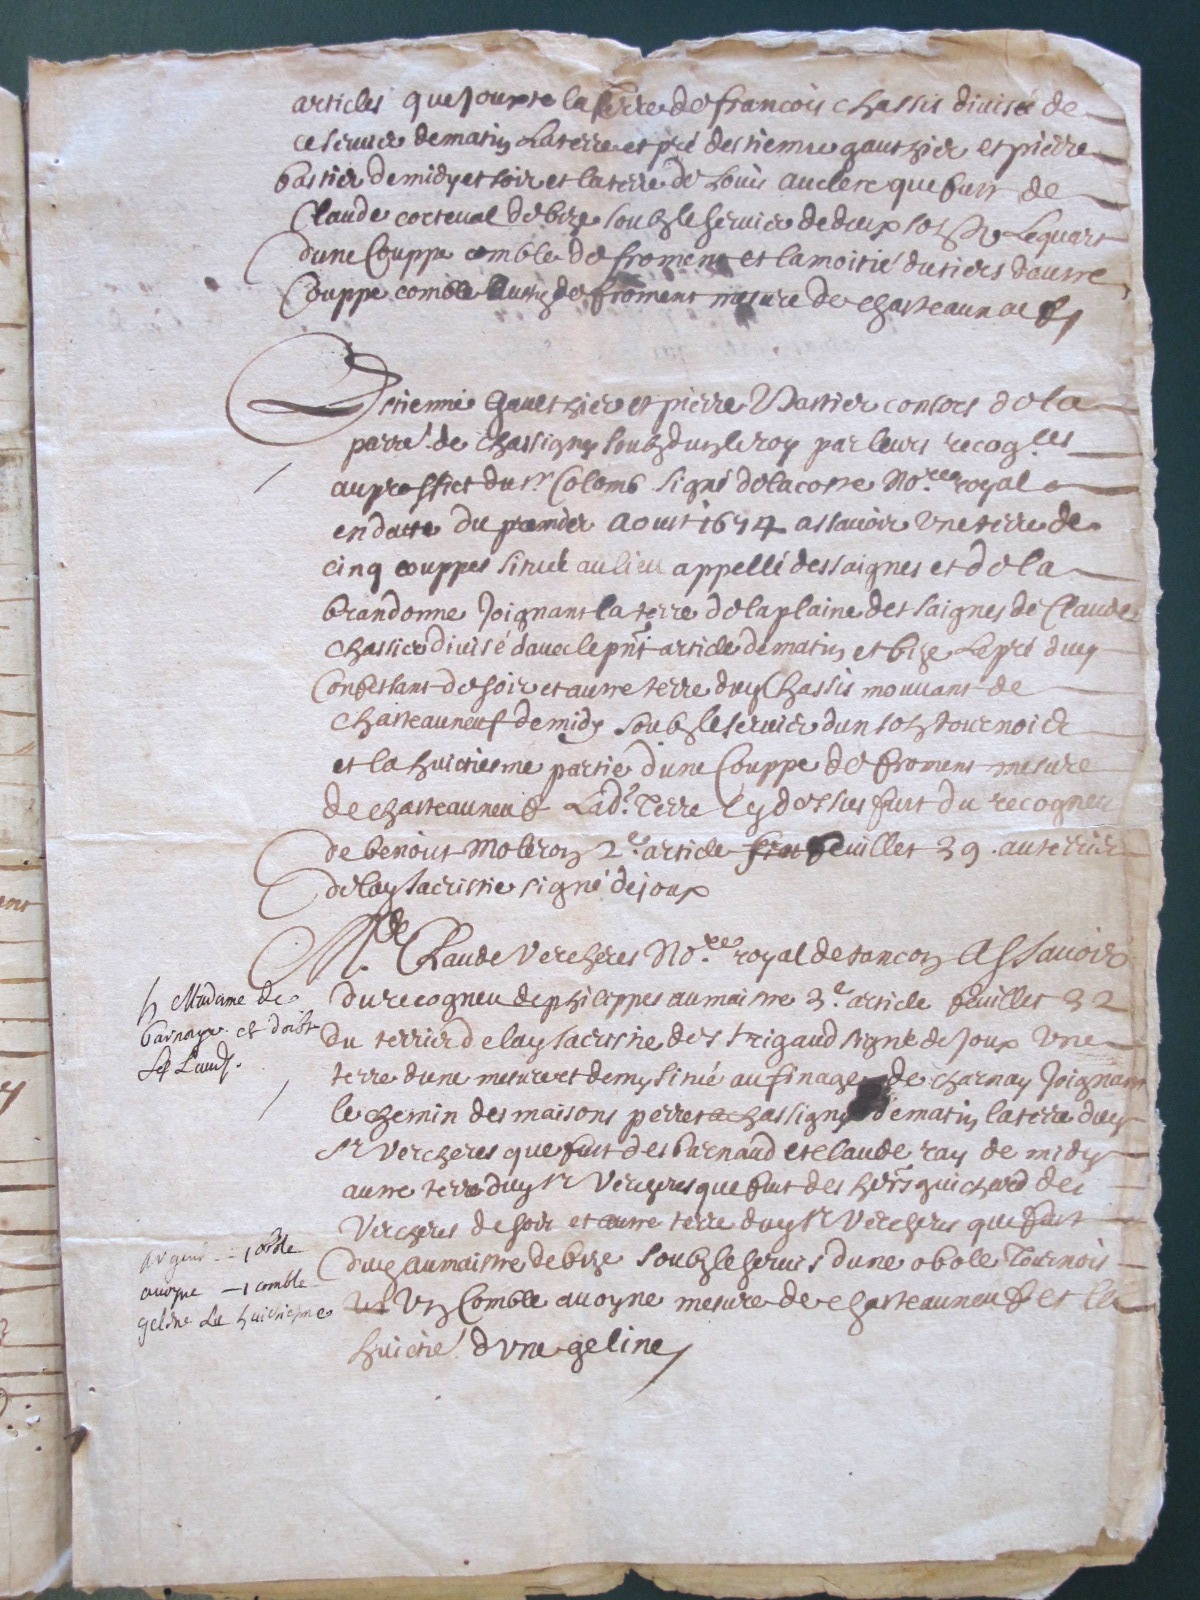 articles que jouxte la terre de francois chassis divisé de
ce servir de matin la terre et pré destienne gauthier et pierre
bastier de midy et soir et la terre de Louis auclerc que fust de
Claude corteval de bize soubz le servic de deux solz le quart
dune Couppe comble de froment et la moitié du tiers dautre
Couppe comble aussy de froment mesure de chasteauneuf
Estienne Gaulthier et pierre Bastier consors de la
parre. de chassigny soubz dun le roy par leurs recog.ces
au proffict du sr Colomb signé delacoste No.re royal
en datte du premier Aoust 1674 assavoir une terre de
cinq couppes situé au lieu appellé des saignes et de la
brandonne Joignant la terre de la plaine des saignes de Claude
chassis divisé d'avec le pnt article de matin et bize Le pré duy
Combestant de soir et autre terre duy Chassis mouvant de
chasteauneuf de midy soubz le servic dun solz tournois
et la huictiesme partie d'une Couppe de froment mesure
de chasteauneuf Lad. Terre cy dessus fust du recogneu
de benoist Moleron 2e. article feuillet 39 au terrier
de lay sacristie signé dejoux
M.e Claude Vercheres No.re royal de tancon Assavoir
du recogneu de philippes aumaistre 3e article feuillet 32
du terrier de lay sacristie de St rigaud signé de Joux Une
terre dune mesure et demy situé au finage de charnay Joignant
le chemin des maisons perret a chassigny de matin la terre duy
Sr Vercheres que fust des barnaud et claude ray de midy
autre terre duy Sr Vercheres que fust des hers guichard des
Vercheres de soir et autre terre duy Sr Vercheres que fust
duy aumaistre de bize soubz le servis dune obole Tournois
Un Comble avoyne mesure de chasteauneuf et la
huictie. d'une geline
h Madame de
barnaye et doibt
les Laudz.
argent - 1 obole
avoyne - 1 comble
geline La huictieme